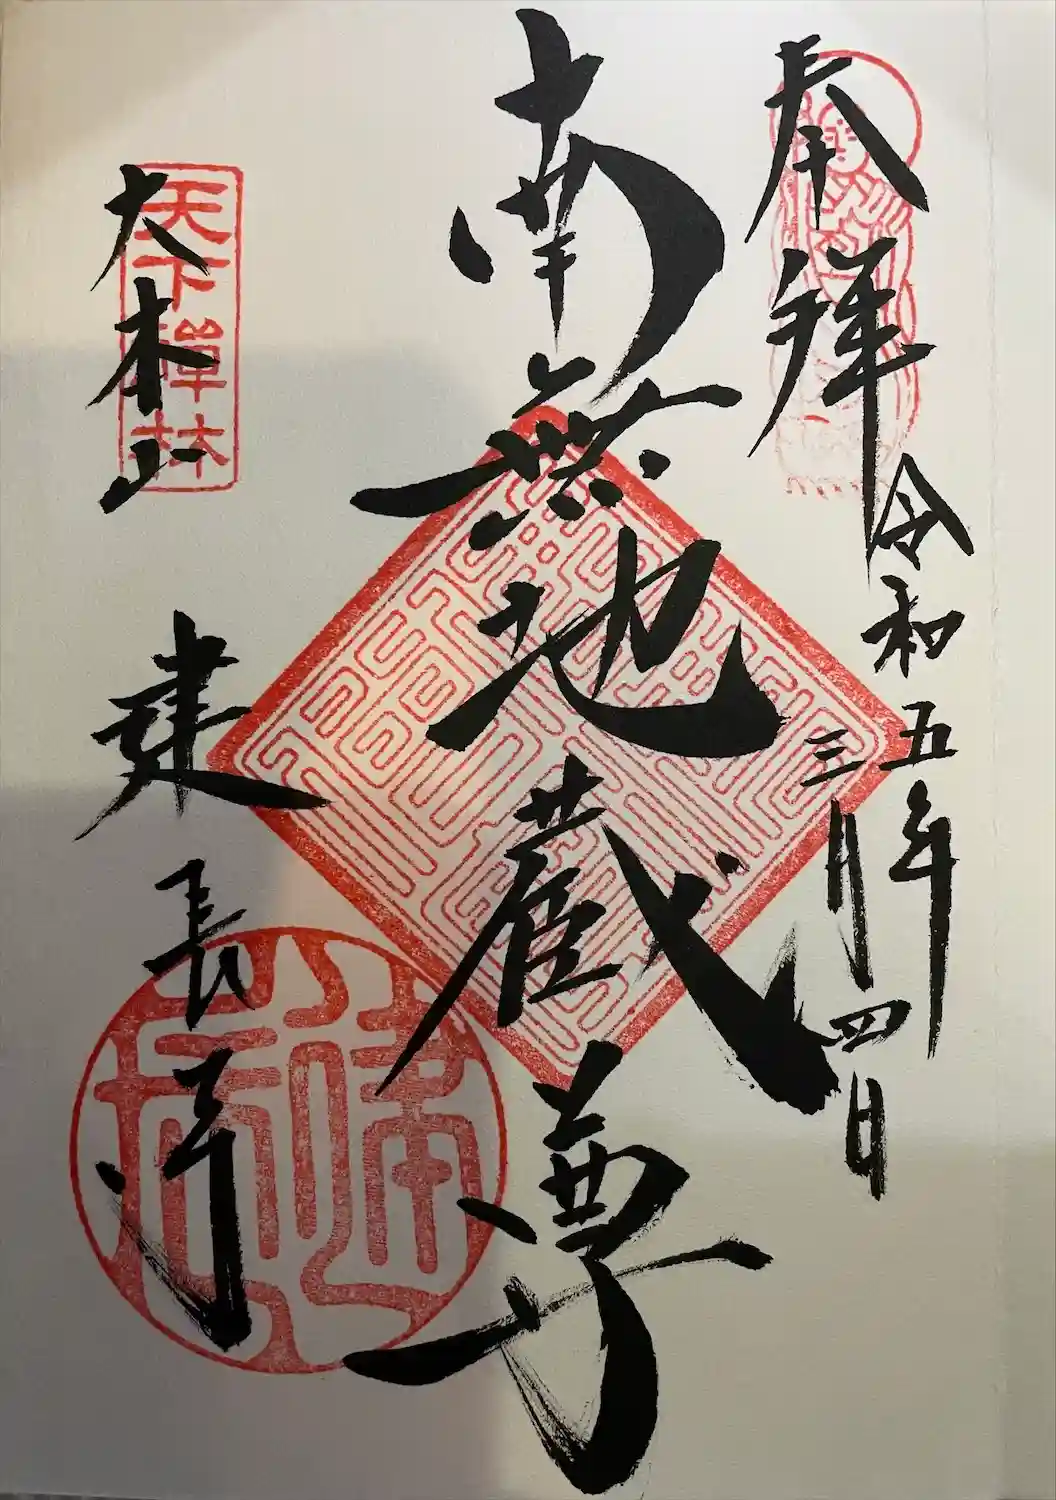 奉拝
令和五年
三月四日
南無地蔵尊
大本山
天下禅林
建長寺